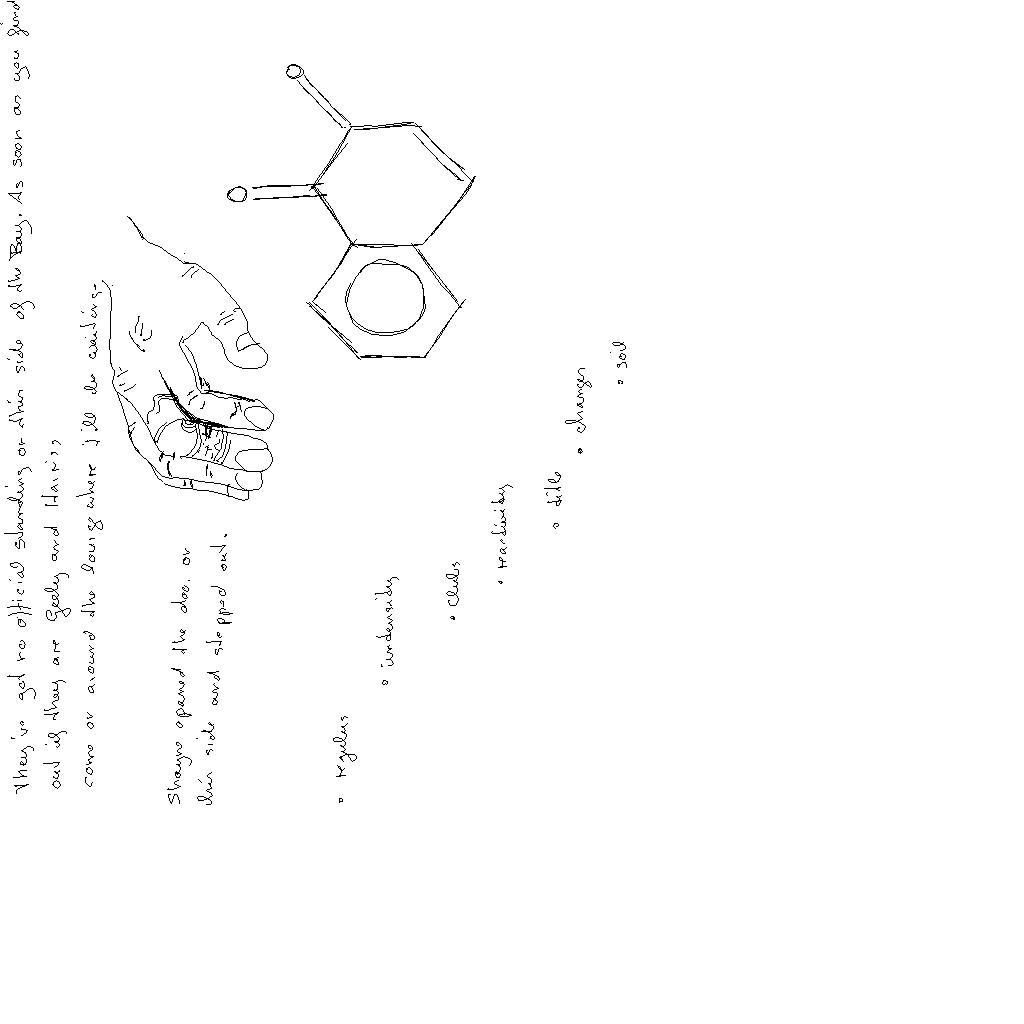 They've got no official standing on this side of the Bay. As soon as you find
out if they are Geely and Hains,
come on around the lounge where I'll be waiting.
Shayne opened the door on
his side and stepped out.
• regulus
• intensity
• clubs
• reactivity
• title
• changes
• soil